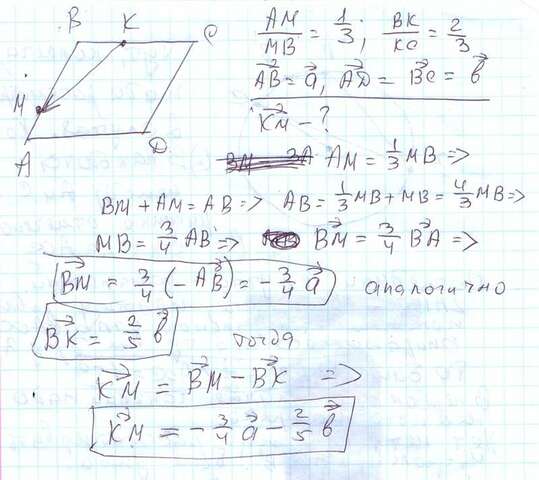 B K C
M
A D
AM/MB = 1/3; BK/KC = 2/3
AB⃗ = a⃗, AD⃗ = BC⃗ = в⃗
KM⃗ - ?
AM = 1/3 MB =>
BM + AM = AB => AB = 1/3 MB + MB = 4/3 MB =>
MB = 3/4 AB => BM⃗ = 3/4 BA⃗ =>
BM⃗ = 3/4 (-AB⃗) = -3/4 a⃗ аналогично
BK⃗ = 2/5 в⃗ тогда
KM⃗ = BM⃗ - BK⃗ =>
KM⃗ = -3/4 a⃗ - 2/5 в⃗